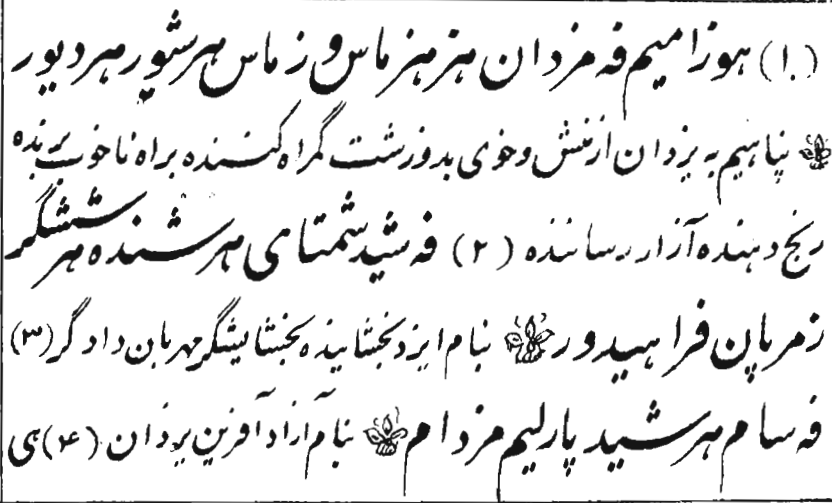 (۱) هوزامیم فه مزدان هزهزماس و زماس هرشیور هردیور
پناهیم به یزدان از منش و خوی بد و زشت گمراه کننده براه ناخوب برنده
رنج دهنده آزار رساننده (۲) فه شید شمتای هرشنده هرششگر
زمرپان فراهیدور بنام ایزد بخشاینده بخشایشگر مهربان دادگر (۳)
فه سام هرشید پارلیم مزدام بنام آزاد آفرین یزدان (۴) هی